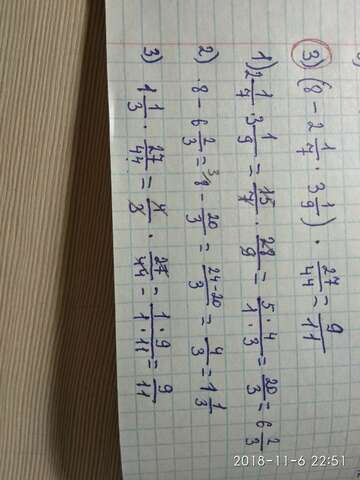 3) (8 - 2 1/7 · 3 1/9) · 27/44 = 9/11
1) 2 1/7 · 3 1/9 = 15/7 · 28/9 = 5·4/1·3 = 20/3 = 6 2/3
2) 8 - 6 2/3 = 3/8 - 20/3 = 24-20/3 = 4/3 = 1 1/3
3) 1 1/3 · 27/44 = 4/3 · 27/44 = 1·9/1·11 = 9/11
2018-11-6 22:51